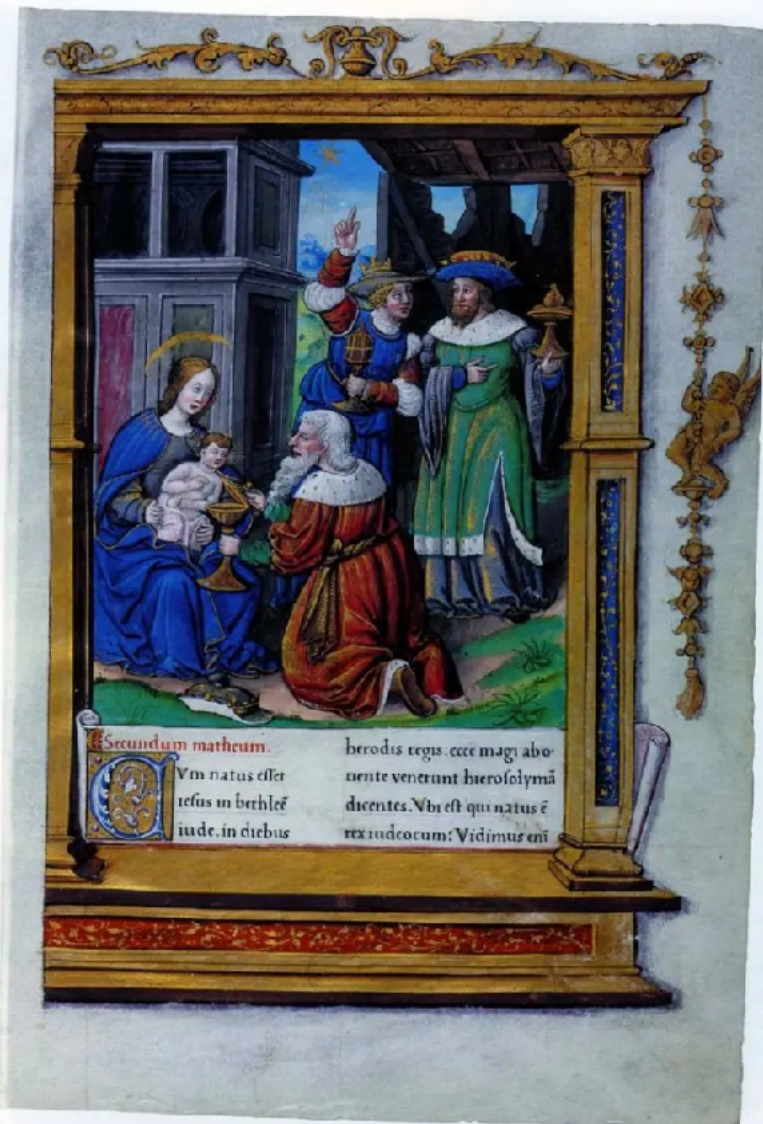 Secundum matheum.
Vm natus esset
iesus in bethleē
iude. in diebus
herodis regis. ecce magi abo
riente venerunt hierosolymā
dicentes. Vbi est qui natus ē
rex iudeorum: Vidimus eni